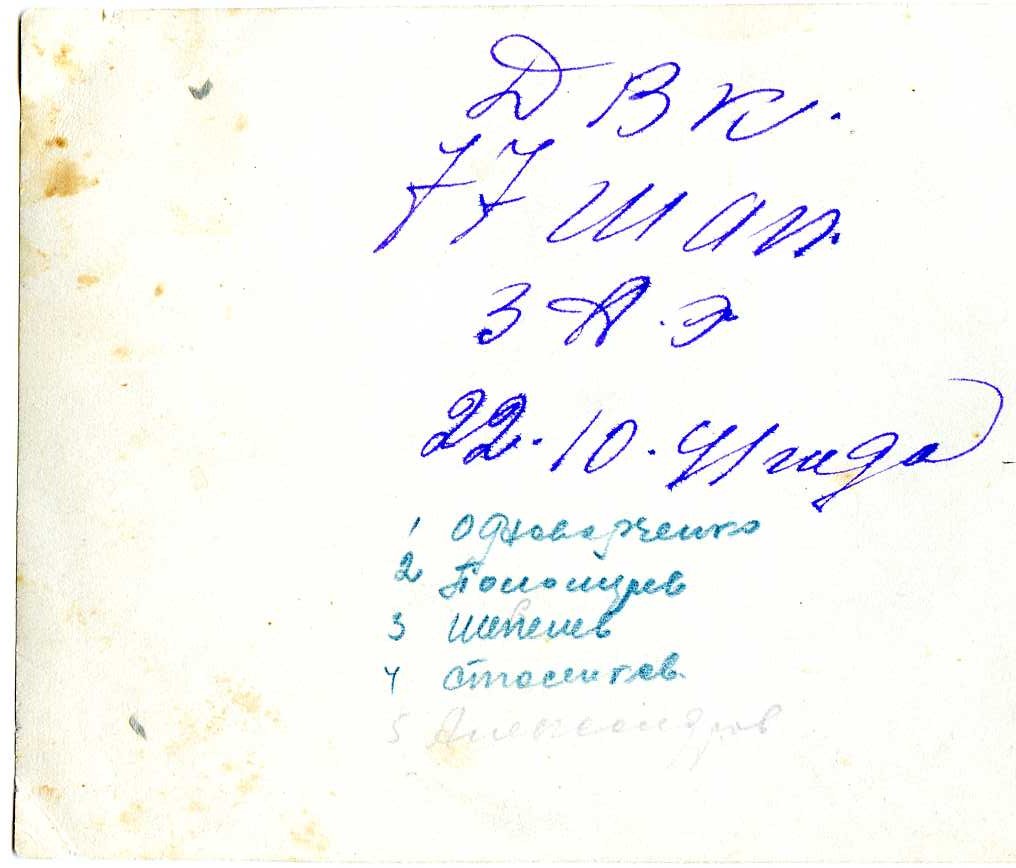 ДВК.
77 ШАП.
3 А.Э
22.10.41 года
1 Одноварченко
2 Пономарев
3 Шепелев
4
5 Александров